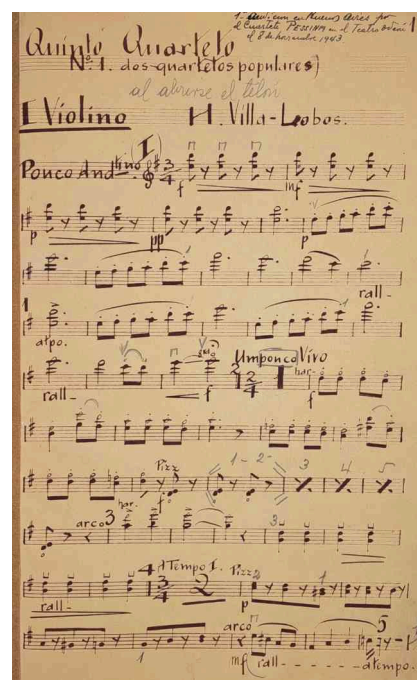 1ª audición en Buenos Aires por
el Cuarteto PESSINA en el Teatro Odeón
el 8 de noviembre 1943
Quinto Quarteto
Nº 1. dos quartetos populares)
al abrirse el telón
I Violino H. Villa-Lobos.
(I)
Pouco And.tino 3/4
f mf
p pp p
rall-
1
atpo.
rall- f Um pouco Vivo 2/4 har. f
Pizz 1-2- 3 4 5
har. f
arco 3 3
rall- 4 A Tempo I. 3/4 2 Pizz 2 p 1
1 arco mf (rall- - - - - - a tempo. 5